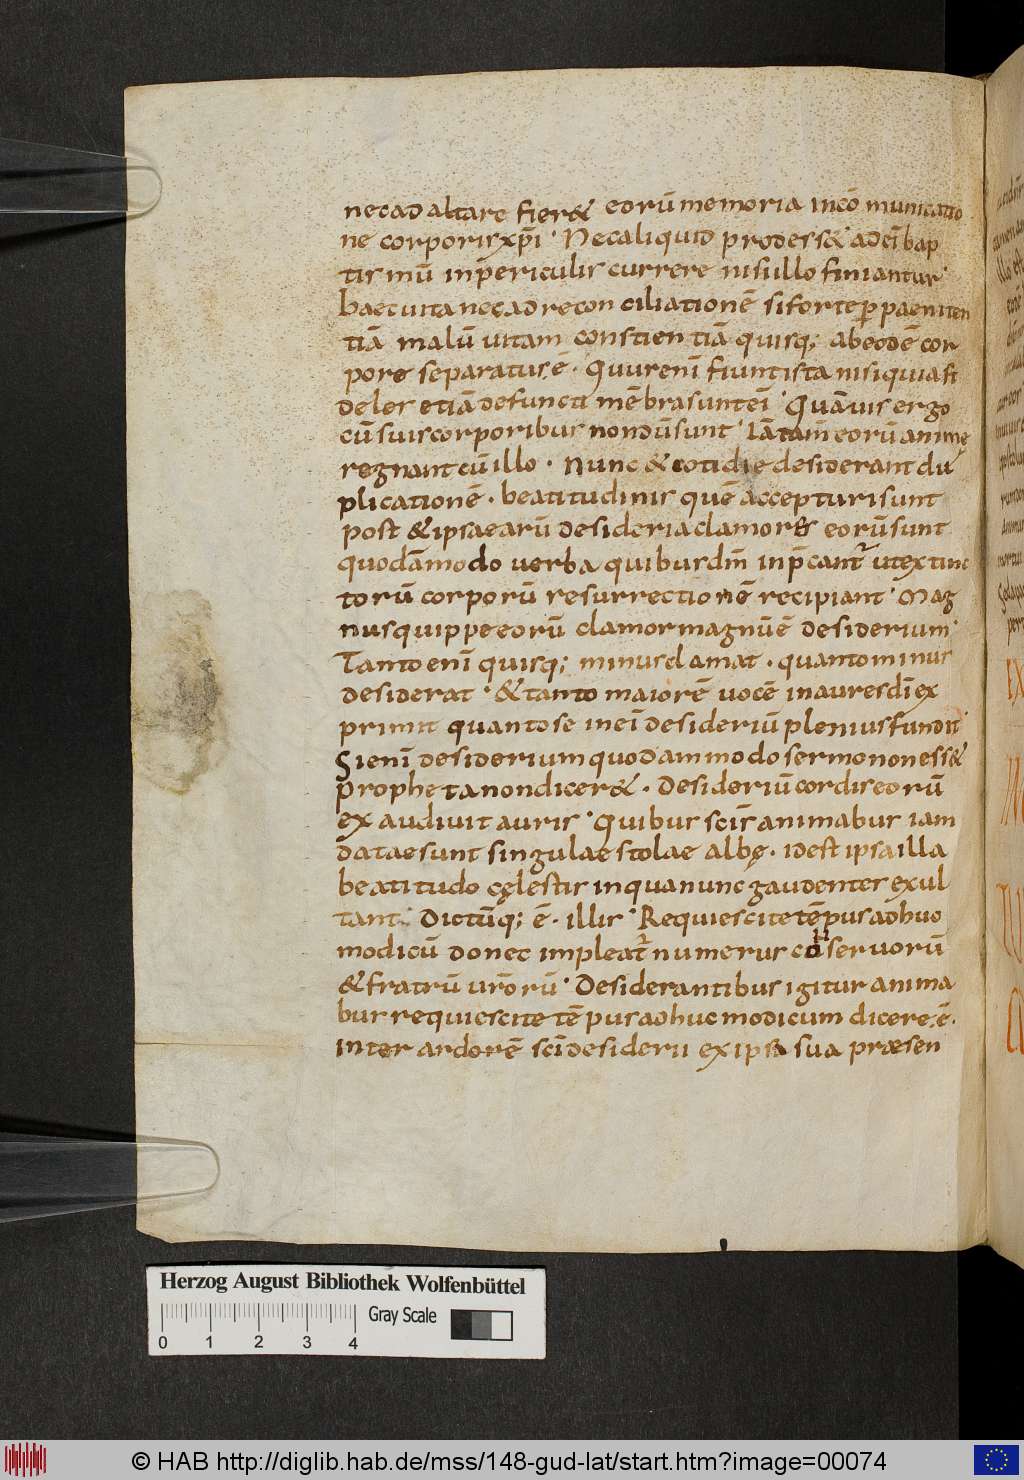 nec ad altare fier& eorū memoria incō municatio
ne corporis xp̄i · Nec aliquid prodess& ad ei bap
tismū in periculis currere ni s ullo finiantur ·
haec uita nec ad recon ciliationē si forte ꝑ paeniten
tiā malū uitam constien tiā quisq; ab eodē cor
pore separatus ē · Quur enī fiunt ista nisi quia fi
deles etiā defuncti mēbra sunt eī · Quāuis ergo
cū suis corporibus nondū sunt · Iā tam̄ eorū animę
regnant cū illo · Nunc & cotidie desiderant du
plicationē · beatitudinis quē accepturi sunt
post & ipsae arū desideria clamores eorū sunt
quodāmodo uerba quibus dn̄i in p̄cant̄ ut extinc
torū corporū resurrectionē recipiant · Mag
nus quippe eorū clamor magnū ē desiderium ·
Tanto enī quisq; minus clamat · quanto minus
desiderat · & tanto maiorē uocē in aures dī ex
primit quanto se in eī desideriū plenius fundit ·
Si enī desiderium quodammodo sermo non ess&
propheta non dicer& · Desideriū cordis eorū
ex audiuit auris · Quibus scīs animabus iam
datae sunt singulae stolae albę · id est ipsa illa
beatitudo cęlestis in qua nunc gaudenter exul
tant · Dictūq; ē · illis · Requiescite tēpus adhuc
modicū donec impleat̄ numerus cōseruorū
& fratrū ur̄orū · Desiderantibus igitur anima
bus requiescite tēpus adhuc modicum dicere ē ·
inter ardorē scī desiderii ex ipsa sua præsen
Herzog August Bibliothek Wolfenbüttel
Gray Scale
0 1 2 3 4
© HAB http://diglib.hab.de/mss/148-gud-lat/start.htm?image=00074